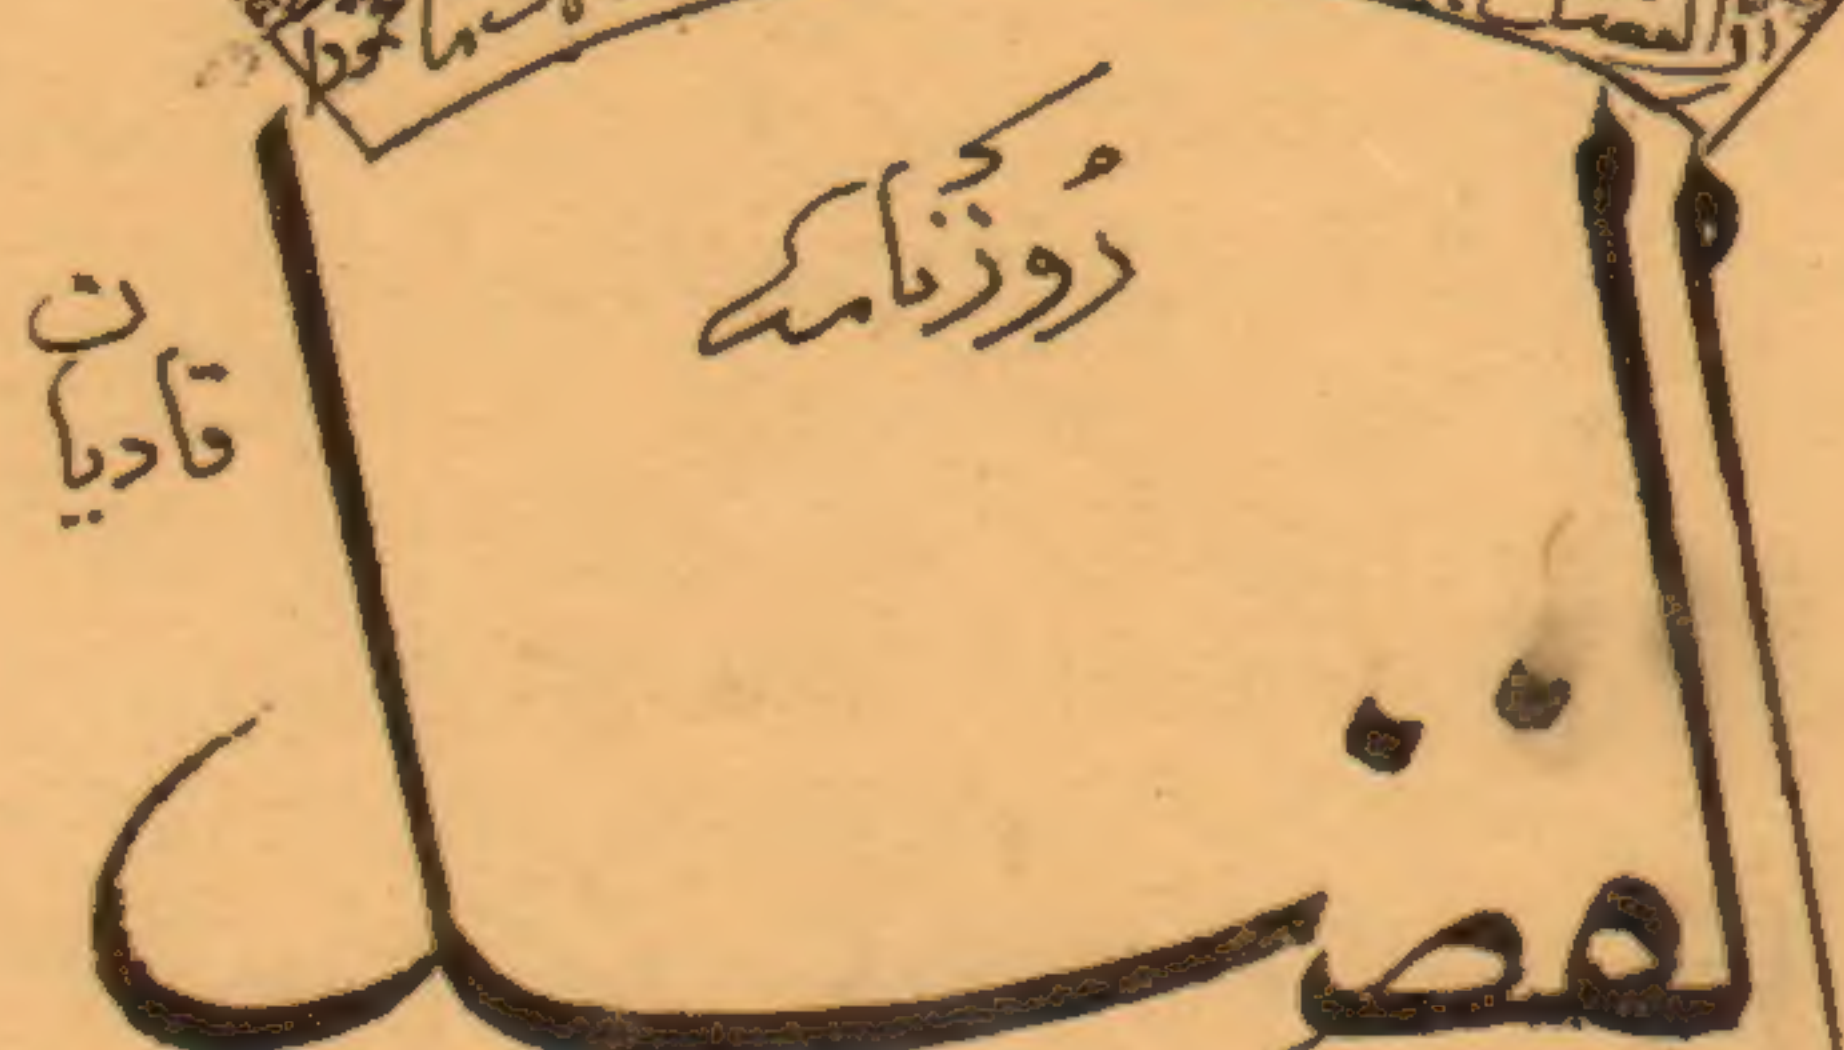 روزنامہ
الفضل
قادیان